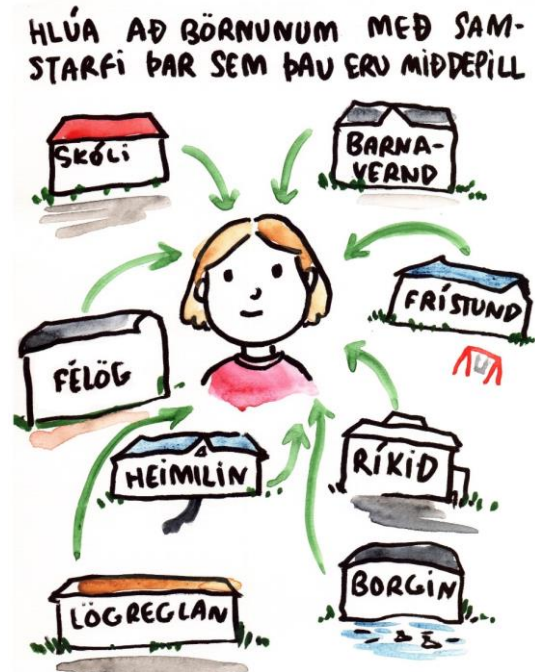 HLÚA AÐ BÖRNUNUM MEÐ SAM-
STARFI ÞAR SEM ÞAU ERU MIÐDEPILL
SKÓLI
BARNA-
VERND
FRÍSTUND
FÉLÖG
HEIMILIN
RÍKIÐ
LÖGREGLAN
BORGIN